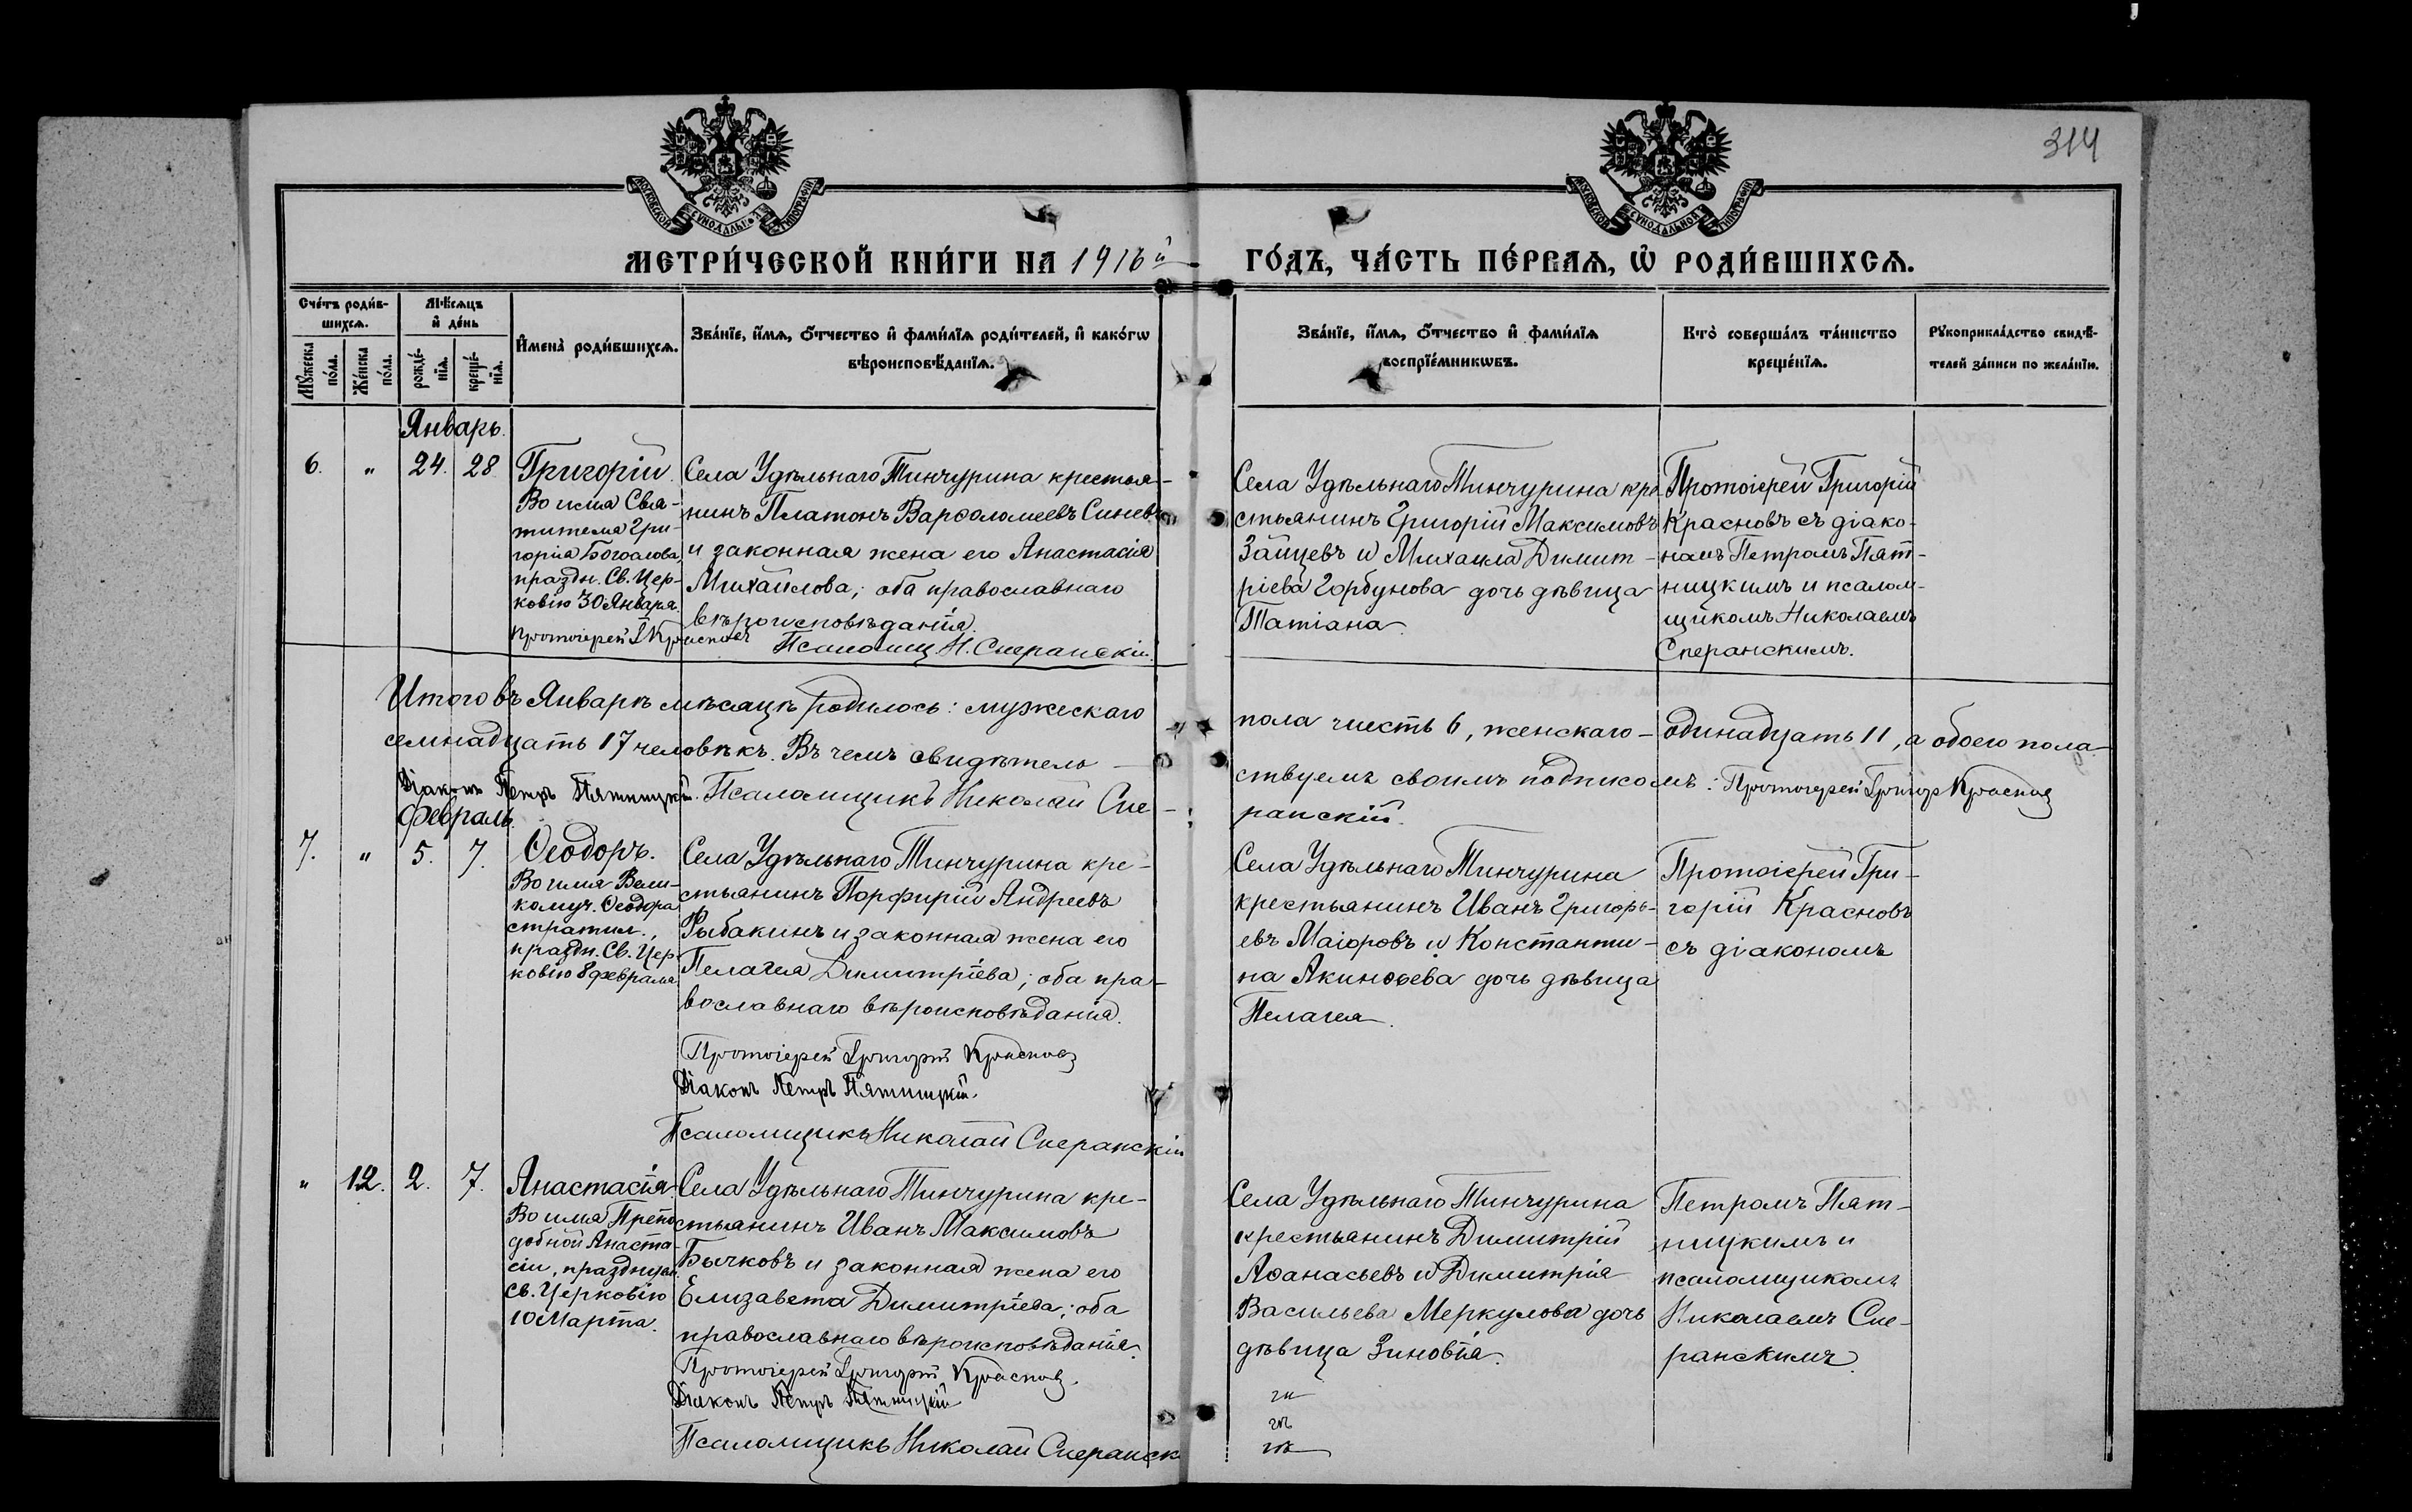 314
МОСКОВСКОЙ СѴНОДАЛЬНОЙ ТИПОГРАФІИ
МОСКОВСКОЙ СѴНОДАЛЬНОЙ ТИПОГРАФІИ
МЕТРИ́ЧЕСКОЙ КНИ́ГИ НА 1916й ГО́ДЪ, ЧА́СТЬ ПЕ́РВАѦ, Ѡ҆ РОДИ́ВШИХСѦ.
Сче́тъ роди́в-
шихсѧ.
Мꙋ́жеска
по́ла.
Же́нска
по́ла.
Мѣ́сѧцъ
и҆ де́нь
рожде́-
нїѧ.
креще́-
нїѧ.
И҆мена̀ роди́вшихсѧ.
Зва́нїе, и҆́мѧ, ѻ҆́тчество и҆ фами́лїѧ роди́телей, и҆ како́гѡ
вѣроисповѣ́данїѧ.
Зва́нїе, и҆́мѧ, ѻ҆́тчество и҆ фами́лїѧ
воспрїе́мникѡвъ.
Кто̀ соверша́лъ та́инство
креще́нїѧ.
Рꙋкоприкла́дство свидѣ́-
телей за́писи по жела́нїю.
Январь.
6. " 24. 28
Григорій
Во имя Свя-
тителя Гри-
горія Богослова,
праздн. Св. Цер-
ковію 30 Января.
Протоіерей Г Красновъ
Села Удѣльнаго Тинчурина крестья-
нинъ Платонъ Варѳоломеевъ Синевъ
и законная жена его Анастасія
Михайлова; оба православнаго
вѣроисповѣданія.
Псаломщ. Н. Сперанскій.
Села Удѣльнаго Тинчурина кре-
стьянинъ Григорій Максимовъ
Зайцевъ и Михаила Димит-
ріева Горбунова дочь дѣвица
Татіана.
Протоіерей Григорій
Красновъ съ діако-
номъ Петромъ Пят-
ницкимъ и псалом-
щикомъ Николаемъ
Сперанскимъ.
Итого въ Январѣ мѣсяцѣ родилось: мужескаго пола шесть 6, женскаго - одинадцать 11, а обоего пола-
семнадцать 17 человѣкъ. Въ чемъ свидѣтель-ствуемъ своимъ подписомъ: Протоіерей Григор Красновъ
Діаконъ Петръ Пятницкій. Псаломщикъ Николай Спе-ранскій.
Февраль.
7. " 5. 7.
Ѳеодоръ.
Во имя Вели-
комуч. Ѳеодора
стратил.,
праздн. Св. Цер-
ковію 8 февраля
Села Удѣльнаго Тинчурина кре-
стьянинъ Порфирій Андреевъ
Рыбакинъ и законная жена его
Пелагея Димитріева; оба пра-
вославнаго вѣроисповѣданія.
Протоіерей Григорій Красновъ
Діаконъ Петръ Пятницкій.
Псаломщикъ Николай Сперанскій
Села Удѣльнаго Тинчурина
крестьянинъ Иванъ Григорь-
евъ Маіоровъ и Константи-
на Акинѳьева дочь дѣвица
Пелагея.
Протоіерей Гри-
горій Красновъ
съ діакономъ
" 12. 2. 7.
Анастасія
Во имя Препо
добной Анаста-
сіи, празднуем.
св. Церковію
10 Марта.
Села Удѣльнаго Тинчурина кре-
стьянинъ Иванъ Максимовъ
Бычковъ и законная жена его
Елизавета Димитріева; оба
православнаго вѣроисповѣданія.
Протоіерей Григорій Красновъ.
Діаконъ Петръ Пятницкій
Псаломщикъ Николай Сперанск
Села Удѣльнаго Тинчурина
крестьянинъ Димитрій
Аѳанасьевъ и Димитрія
Васильева Меркулова дочь
дѣвица Зиновія.
Петромъ Пят-
ницкимъ и
псаломщикомъ
Николаемъ Спе-
ранскимъ.